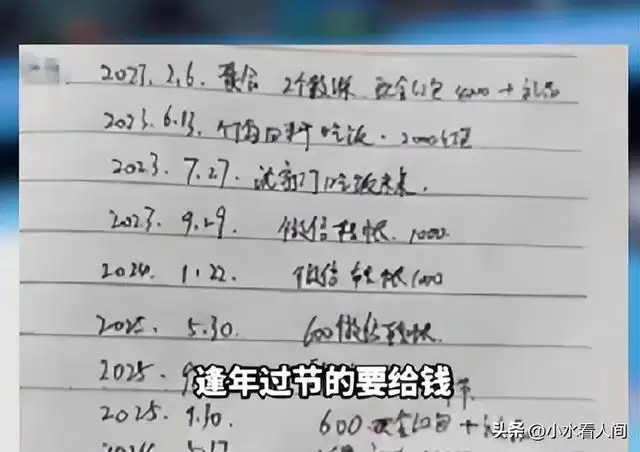 2023.2.6. 聚会 2个教练 现金红包 4000+礼品
2023.6.13. 吃饭. 2000红包
2023. 7.27. 沈家门吃饭
2023. 9.29. 微信转帐. 1000.
2024. 1.22. 微信转帐1000
2025. 5.30. 600微信转帐.
2025. 9 节
逢年过节的要给钱
2025. 9.30. 600 现金红包+礼品
头条 @小水看人间